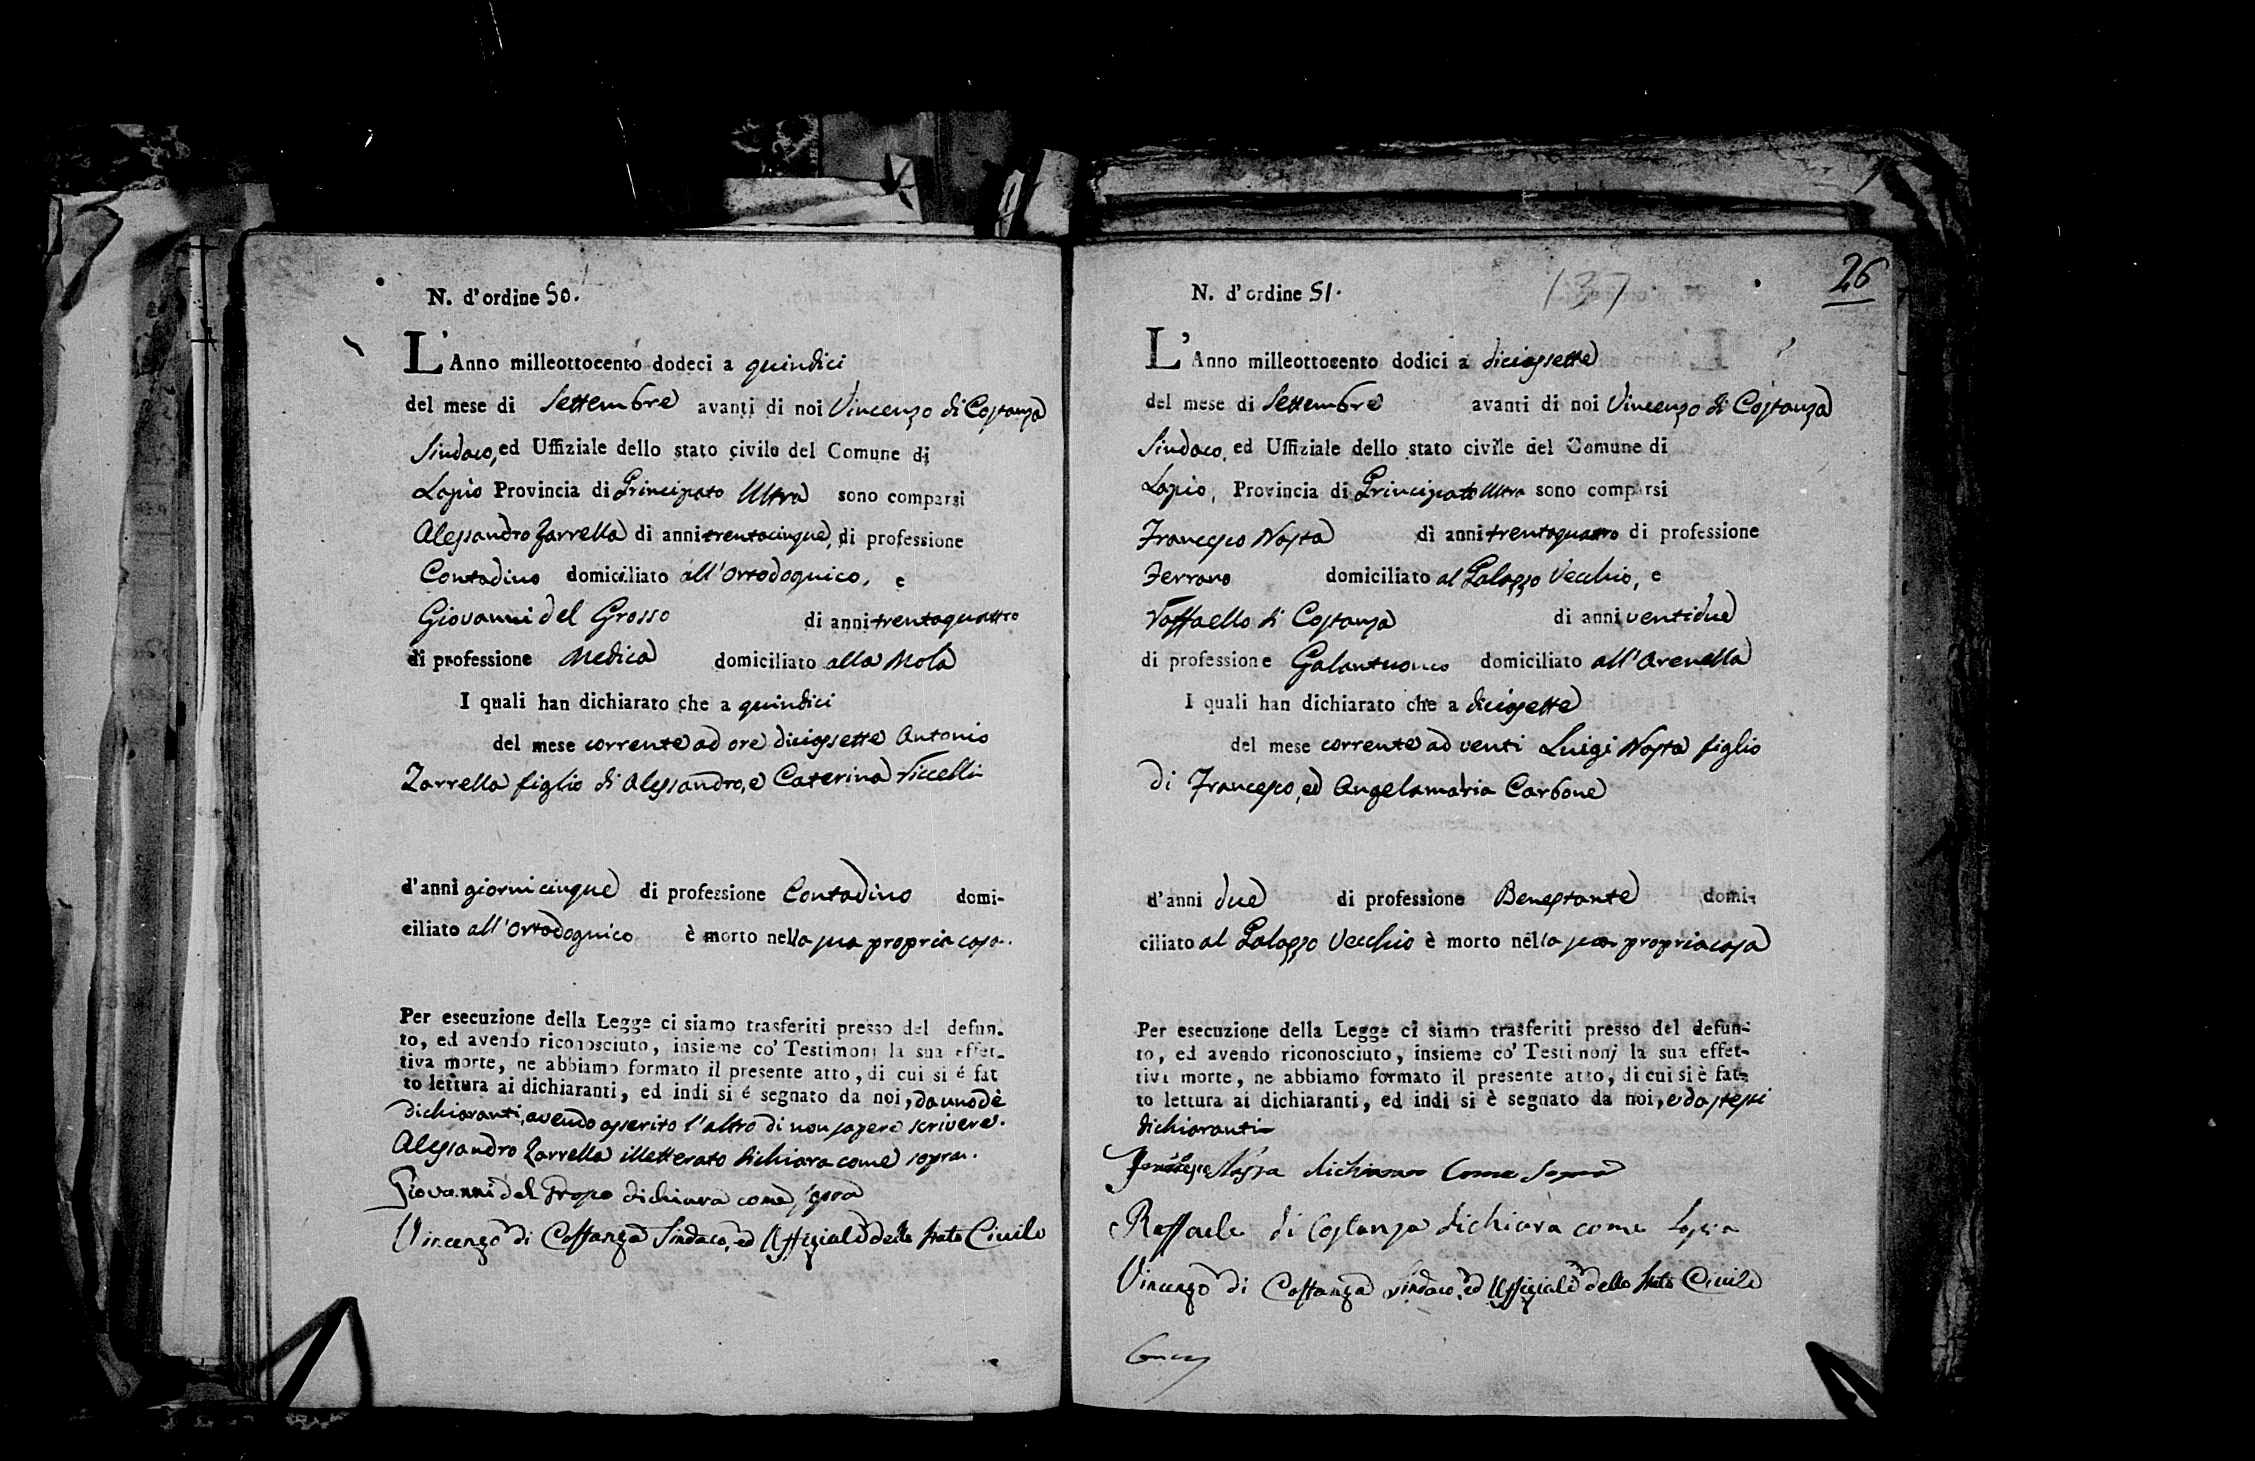 N. d'ordine 50.
L'Anno milleottocento dodeci a quindici
del mese di Settembre avanti di noi Vincenzo di Costanza
Sindaco, ed Uffiziale dello stato civile del Comune di
Lapio Provincia di Principato Ultra sono comparsi
Alessandro Zarrella di anni trentacinque, di professione
Contadino domiciliato all'Ortodoquico, e
Giovanni del Grosso di anni trentaquattro
di professione Medico domiciliato alla Mola
I quali han dichiarato che a quindici
del mese corrente ad ore diciassette Antonio
Zarrella figlio di Alessandro, e Caterina
d'anni giorni cinque di professione Contadino domi-
ciliato all'Ortodoquico è morto nella sua propria casa.
Per esecuzione della Legge ci siamo trasferiti presso del defun-
to, ed avendo riconosciuto, insieme co' Testimonj la sua effet-
tiva morte, ne abbiamo formato il presente atto, di cui si é fat
to lettura ai dichiaranti, ed indi si é segnato da noi, da uno de
dichiaranti, avendo asserito l'altro di non sapere scrivere.
Alessandro Zarrella illetterato dichiara come sopra.
Giovanni del Grosso dichiara come sopra
Vincenzo di Costanza Sindaco, ed Uffiziale dello stato Civile
26
137
N. d'ordine 51.
L'Anno milleottocento dodici a diciassette
del mese di Settembre avanti di noi Vincenzo di Costanza
Sindaco, ed Uffiziale dello stato civile del Comune di
Lapio, Provincia di Principato Ultra sono comparsi
Francesco Nasta di anni trentaquattro di professione
Ferraro domiciliato al Palazzo Vecchio, e
Raffaello di Costanza di anni ventidue
di professione Galantuomo domiciliato all'Arenella
I quali han dichiarato che a diciassette
del mese corrente ad venti Luigi Nasta figlio
di Francesco, ed Angelamaria Carbone
d'anni due di professione Benestante domi-
ciliato al Palazzo Vecchio è morto nella sua propria casa
Per esecuzione della Legge ci siamo trasferiti presso del defun-
to, ed avendo riconosciuto, insieme co' Testimonj la sua effet-
tiva morte, ne abbiamo formato il presente atto, di cui si è fat-
to lettura ai dichiaranti, ed indi si è segnato da noi, e da stessi
dichiaranti
Francesco Nasta dichiara come sopra
Raffaele di Costanza dichiara come sopra
Vincenzo di Costanza Sindaco, ed Uffiziale dello stato Civile